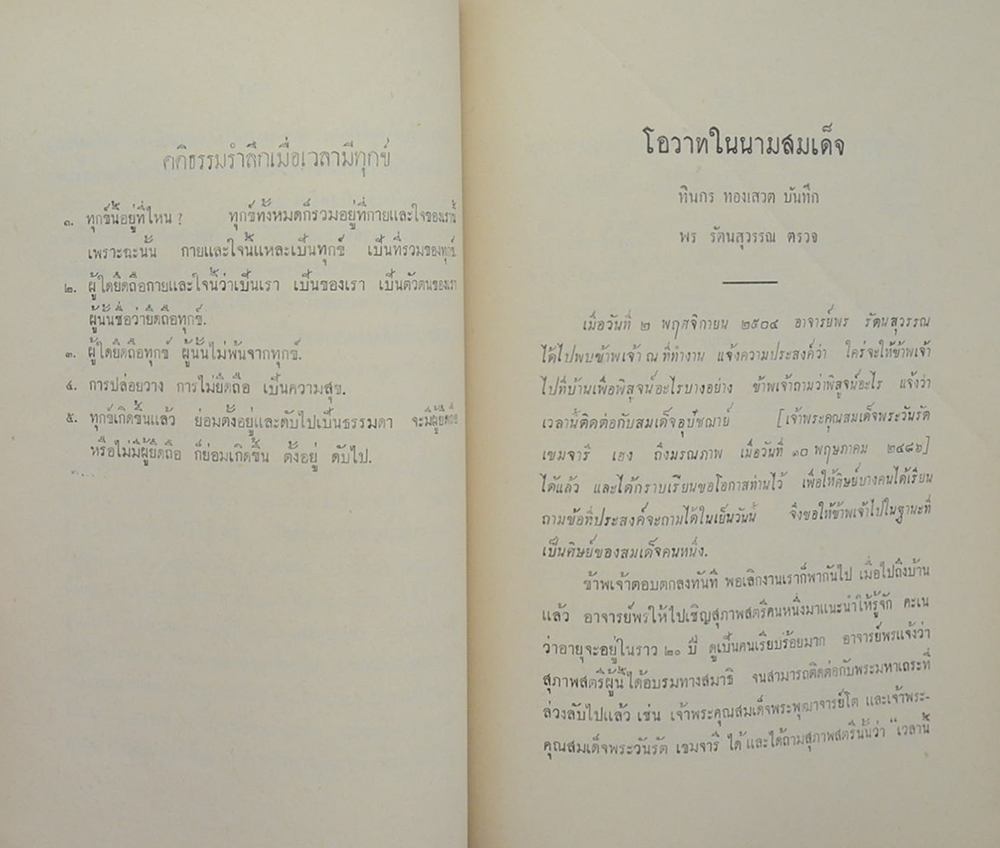 คติธรรมรำลึกเมื่อเวลามีทุกข์
๑. ทุกข์นี้อยู่ที่ไหน ? ทุกข์ทั้งหมดก็รวมอยู่ที่กายและใจของเรานี้
เพราะฉะนั้น กายและใจนี้แหละเป็นทุกข์ เป็นที่รวมของทุกข์
๒. ผู้ใดยึดถือกายและใจนี้ว่าเป็นเรา เป็นของเรา เป็นตัวตนของเรา
ผู้นั้นชื่อว่ายึดถือทุกข์.
๓. ผู้ใดยึดถือทุกข์ ผู้นั้นไม่พ้นจากทุกข์.
๔. การปล่อยวาง การไม่ยึดถือ เป็นความสุข.
๕. ทุกข์เกิดขึ้นแล้ว ย่อมตั้งอยู่และดับไปเป็นธรรมดา จะมีผู้ยึดถือ
หรือไม่มีผู้ยึดถือ ก็ย่อมเกิดขึ้น ตั้งอยู่ ดับไป.
โอวาทในนามสมเด็จ
ทินกร ทองเสวต บันทึก
พร รัตนสุวรรณ ตรวจ
เมื่อวันที่ ๒ พฤศจิกายน ๒๕๐๔ อาจารย์พร รัตนสุวรรณ
ได้ไปพบข้าพเจ้า ณ ที่ทำงาน แจ้งความประสงค์ว่า ใคร่จะให้ข้าพเจ้า
ไปที่บ้านเพื่อพิสูจน์อะไรบางอย่าง ข้าพเจ้าถามว่าพิสูจน์อะไร แจ้งว่า
เวลานี้ติดต่อกับสมเด็จอุปัชฌาย์ [เจ้าพระคุณสมเด็จพระวันรัต
เขมจารี เฮง ถึงมรณภาพ เมื่อวันที่ ๑๐ พฤษภาคม ๒๔๘๖]
ได้แล้ว และได้กราบเรียนขอโอกาสท่านไว้ เพื่อให้ศิษย์บางคนได้เรียน
ถามข้อที่ประสงค์จะถามได้ในเย็นวันนี้ จึงขอให้ข้าพเจ้าไปในฐานะที่
เป็นศิษย์ของสมเด็จคนหนึ่ง.
ข้าพเจ้าตอบตกลงทันที พอเลิกงานเราก็พากันไป เมื่อไปถึงบ้าน
แล้ว อาจารย์พรให้ไปเชิญสุภาพสตรีคนหนึ่งมาแนะนำให้รู้จัก คะเน
ว่าอายุจะอยู่ในราว ๒๐ ปี ดูเป็นคนเรียบร้อยมาก อาจารย์พรแจ้งว่า
สุภาพสตรีผู้นี้ได้อบรมทางสมาธิ จนสามารถติดต่อกับพระมหาเถระที่
ล่วงลับไปแล้ว เช่น เจ้าพระคุณสมเด็จพระพุฒาจารย์โต และเจ้าพระ-
คุณสมเด็จพระวันรัต เขมจารี ได้ และได้ถามสุภาพสตรีนั้นว่า "เวลานี้